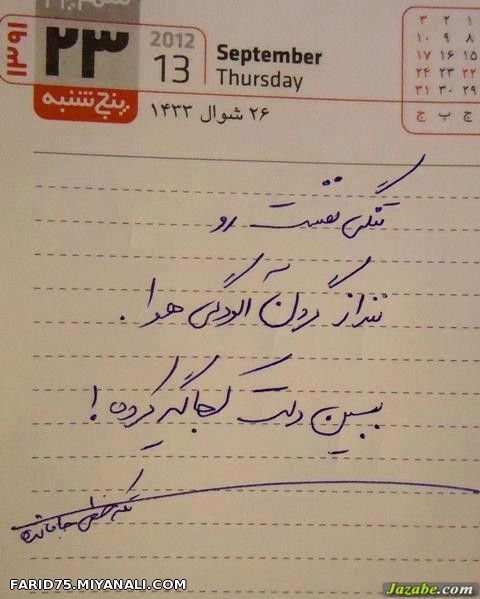 ۱۳۹۱
۲۳
پنج‌شنبه
2012
13
September
Thursday
۲۶ شوال ۱۴۳۳
۳ ۲ ۱
۱۰ ۹ ۸
۱۷ ۱۶ ۱۵
۲۴ ۲۳ ۲۲
۳۱ ۳۰ ۲۹
ج پ ج
تنگی نفست رو
ننداز گردن آلودگی هوا .
ببین دلت کجا گیر کرده !
FARID75.MIYANALI.COM
Jazabe.com